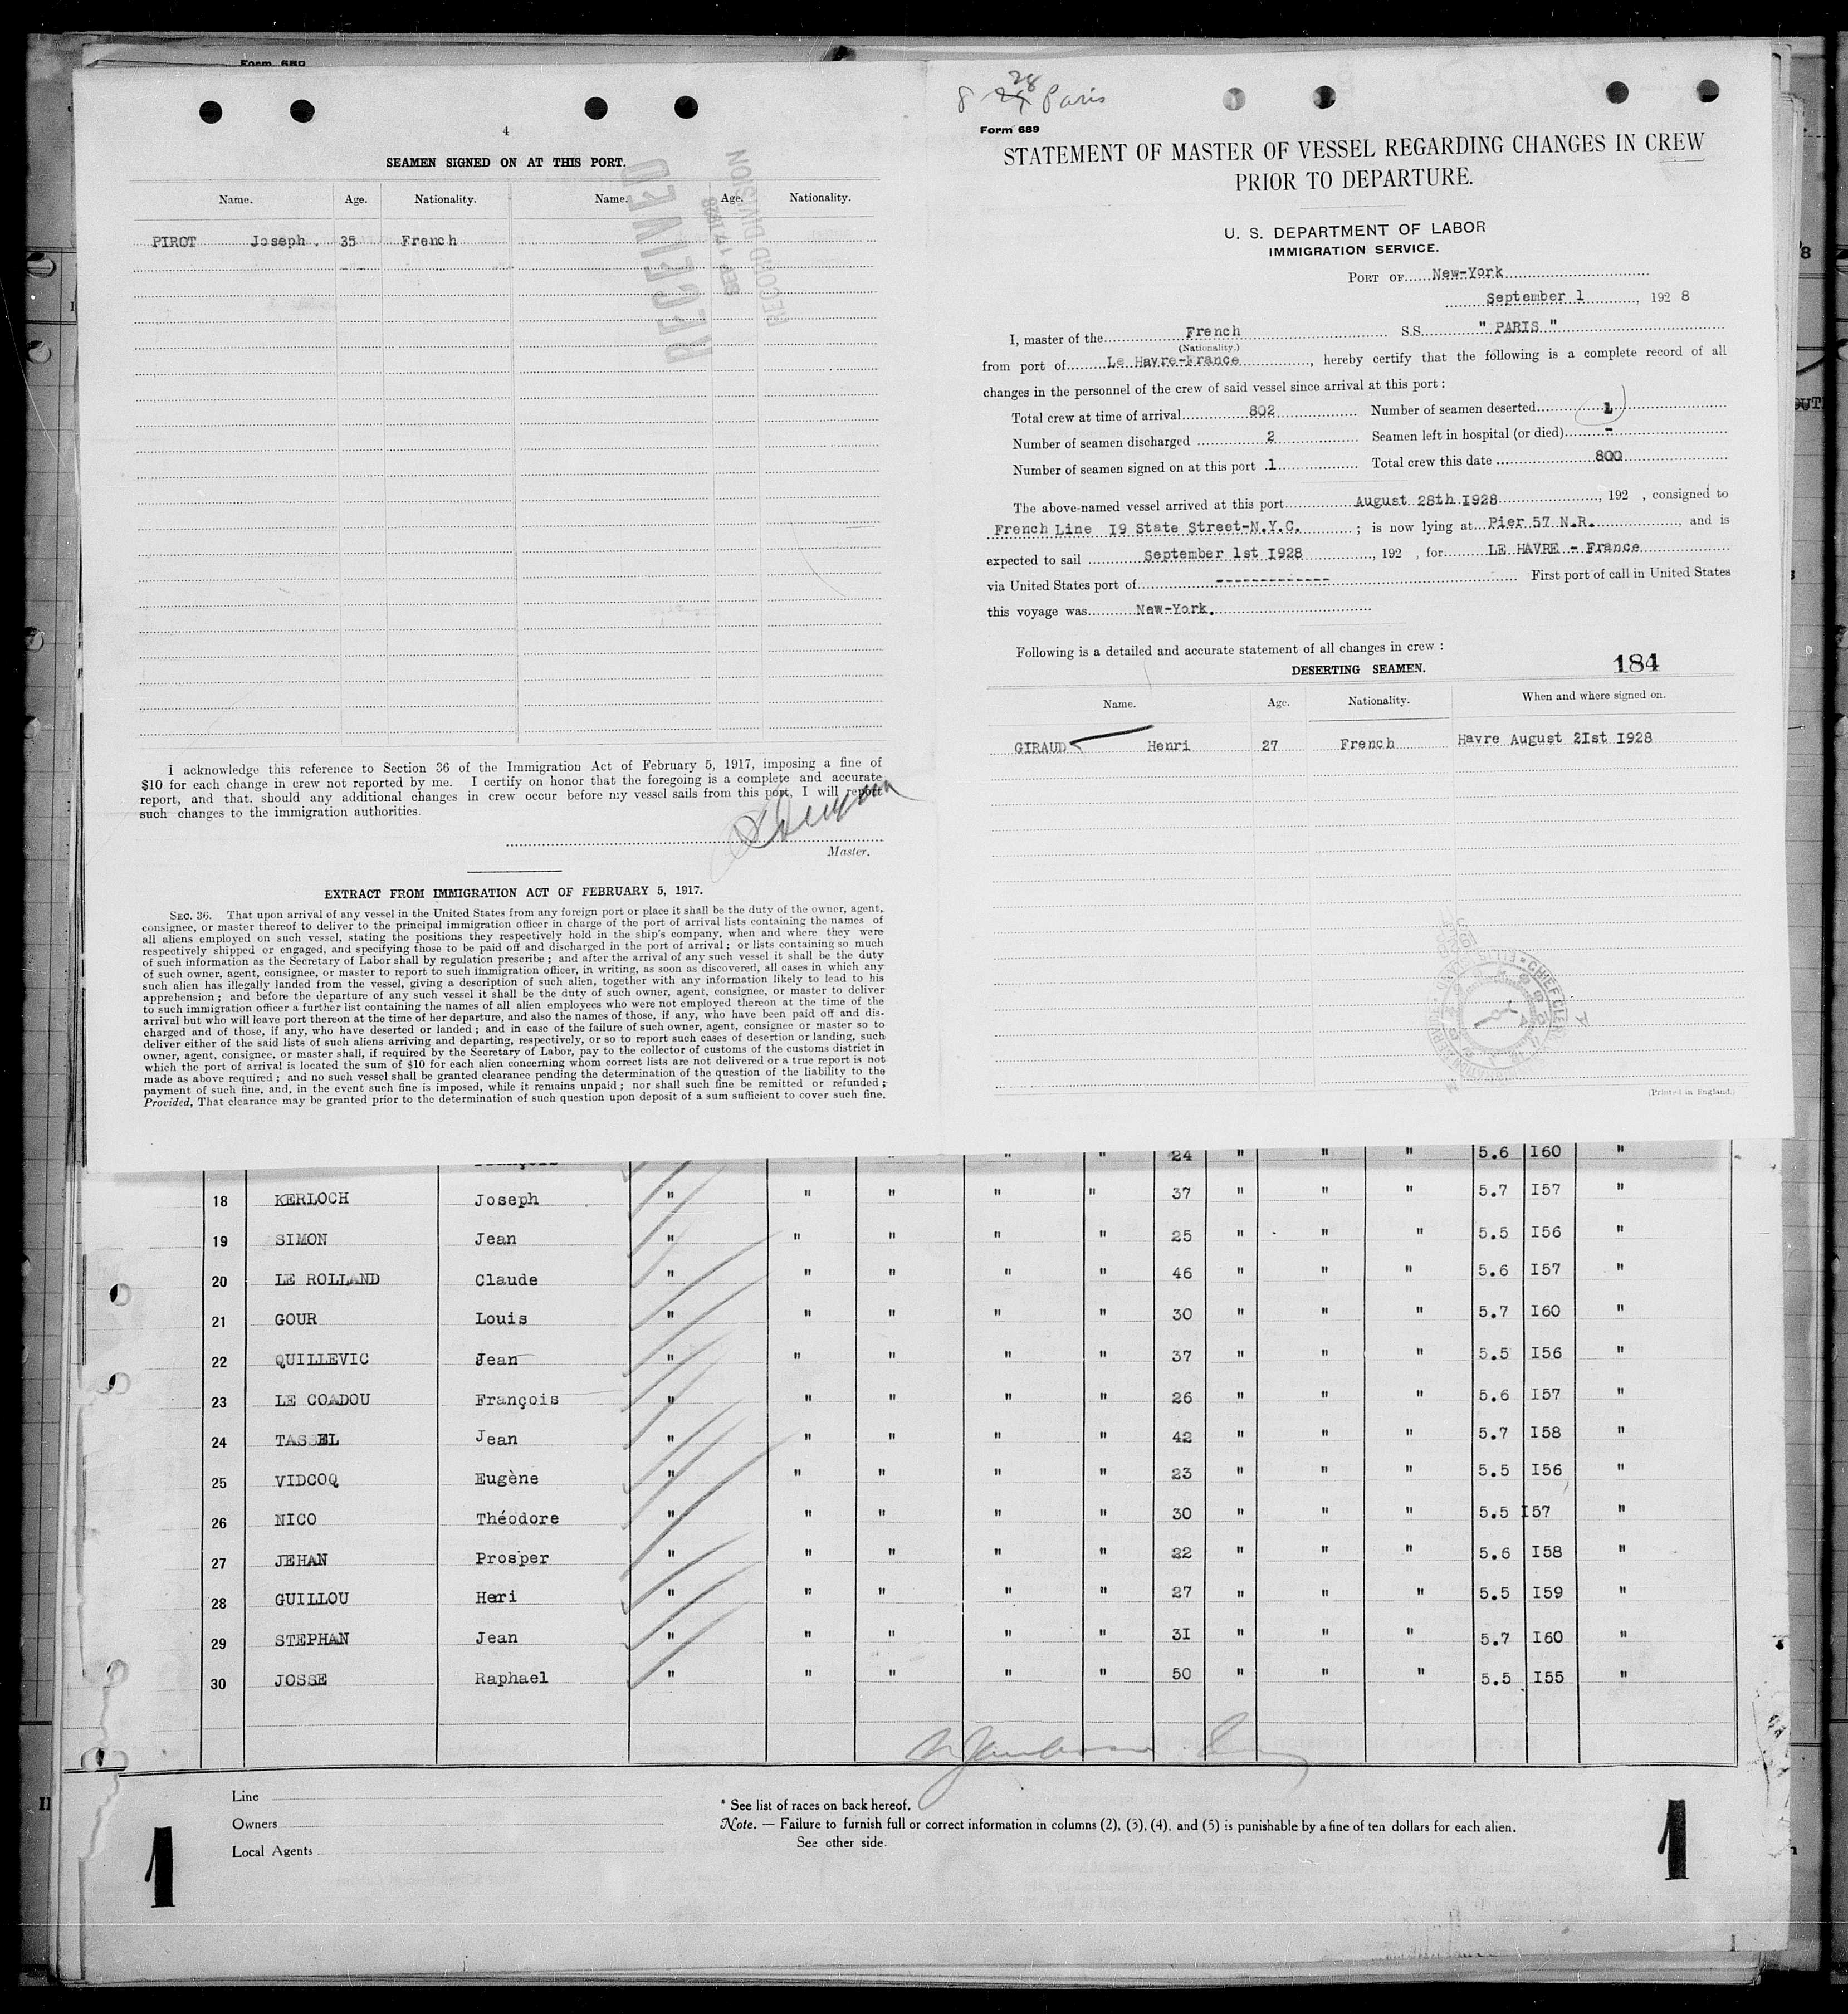 Form 689
4
SEAMEN SIGNED ON AT THIS PORT.
Name. Age. Nationality. Name. Age. Nationality.
PIROT Joseph. 35 French
RECEIVED
SEP 14 1928
RECORD DIVISION
I acknowledge this reference to Section 36 of the Immigration Act of February 5, 1917, imposing a fine of
$10 for each change in crew not reported by me. I certify on honor that the foregoing is a complete and accurate
report, and that, should any additional changes in crew occur before my vessel sails from this port, I will report
such changes to the immigration authorities.
Master.
EXTRACT FROM IMMIGRATION ACT OF FEBRUARY 5, 1917.
SEC. 36. That upon arrival of any vessel in the United States from any foreign port or place it shall be the duty of the owner, agent,
consignee, or master thereof to deliver to the principal immigration officer in charge of the port of arrival lists containing the names of
all aliens employed on such vessel, stating the positions they respectively hold in the ship's company, when and where they were
respectively shipped or engaged, and specifying those to be paid off and discharged in the port of arrival; or lists containing so much
of such information as the Secretary of Labor shall by regulation prescribe; and after the arrival of any such vessel it shall be the duty
of such owner, agent, consignee, or master to report to such immigration officer, in writing, as soon as discovered, all cases in which any
such alien has illegally landed from the vessel, giving a description of such alien, together with any information likely to lead to his
apprehension; and before the departure of any such vessel it shall be the duty of such owner, agent, consignee, or master to deliver
to such immigration officer a further list containing the names of all alien employees who were not employed thereon at the time of the
arrival but who will leave port thereon at the time of her departure, and also the names of those, if any, who have been paid off and dis-
charged and of those, if any, who have deserted or landed; and in case of the failure of such owner, agent, consignee or master so to
deliver either of the said lists of such aliens arriving and departing, respectively, or so to report such cases of desertion or landing, such
owner, agent, consignee, or master shall, if required by the Secretary of Labor, pay to the collector of customs of the customs district in
which the port of arrival is located the sum of $10 for each alien concerning whom correct lists are not delivered or a true report is not
made as above required; and no such vessel shall be granted clearance pending the determination of the question of the liability to the
payment of such fine, and, in the event such fine is imposed, while it remains unpaid; nor shall such fine be remitted or refunded;
Provided, That clearance may be granted prior to the determination of such question upon deposit of a sum sufficient to cover such fine.
28
8 Paris
Form 689
STATEMENT OF MASTER OF VESSEL REGARDING CHANGES IN CREW
PRIOR TO DEPARTURE.
U. S. DEPARTMENT OF LABOR
IMMIGRATION SERVICE.
PORT OF New-York
September 1, 1928
I, master of the French S.S. " PARIS "
(Nationality.)
from port of Le Havre-France, hereby certify that the following is a complete record of all
changes in the personnel of the crew of said vessel since arrival at this port:
Total crew at time of arrival 802 Number of seamen deserted 1
Number of seamen discharged 2 Seamen left in hospital (or died) -
Number of seamen signed on at this port 1 Total crew this date 800
The above-named vessel arrived at this port August 28th I928, 192 , consigned to
French Line I9 State Street-N.Y.C. ; is now lying at Pier 57 N.R., and is
expected to sail September 1st I928, 192 , for LE HAVRE - France
via United States port of ------------- First port of call in United States
this voyage was New-York.
Following is a detailed and accurate statement of all changes in crew :
DESERTING SEAMEN. 184
Name. Age. Nationality. When and where signed on.
GIRAUD Henri 27 French Havre August 2Ist I928
(Printed in England.)
François " " " " 24 " " " 5.6 I60 "
18 KERLOCH Joseph " " " " " 37 " " " 5.7 I57 "
19 SIMON Jean " " " " " 25 " " " 5.5 I56 "
20 LE ROLLAND Claude " " " " " 46 " " " 5.6 I57 "
21 GOUR Louis " " " " " 30 " " " 5.7 I60 "
22 QUILLEVIC Jean " " " " " 37 " " " 5.5 I56 "
23 LE COADOU François " " " " " 26 " " " 5.6 I57 "
24 TASSEL Jean " " " " " 42 " " " 5.7 I58 "
25 VIDCOQ Eugène " " " " " 23 " " " 5.5 I56 "
26 NICO Théodore " " " " " 30 " " " 5.5 I57 "
27 JEHAN Prosper " " " " " 22 " " " 5.6 I58 "
28 GUILLOU Heri " " " " " 27 " " " 5.5 I59 "
29 STEPHAN Jean " " " " " 3I " " " 5.7 I60 "
30 JOSSE Raphael " " " " " 50 " " " 5.5 I55 "
Line
Owners
Local Agents
* See list of races on back hereof.
Note. — Failure to furnish full or correct information in columns (2), (3), (4), and (5) is punishable by a fine of ten dollars for each alien.
See other side.
1 1